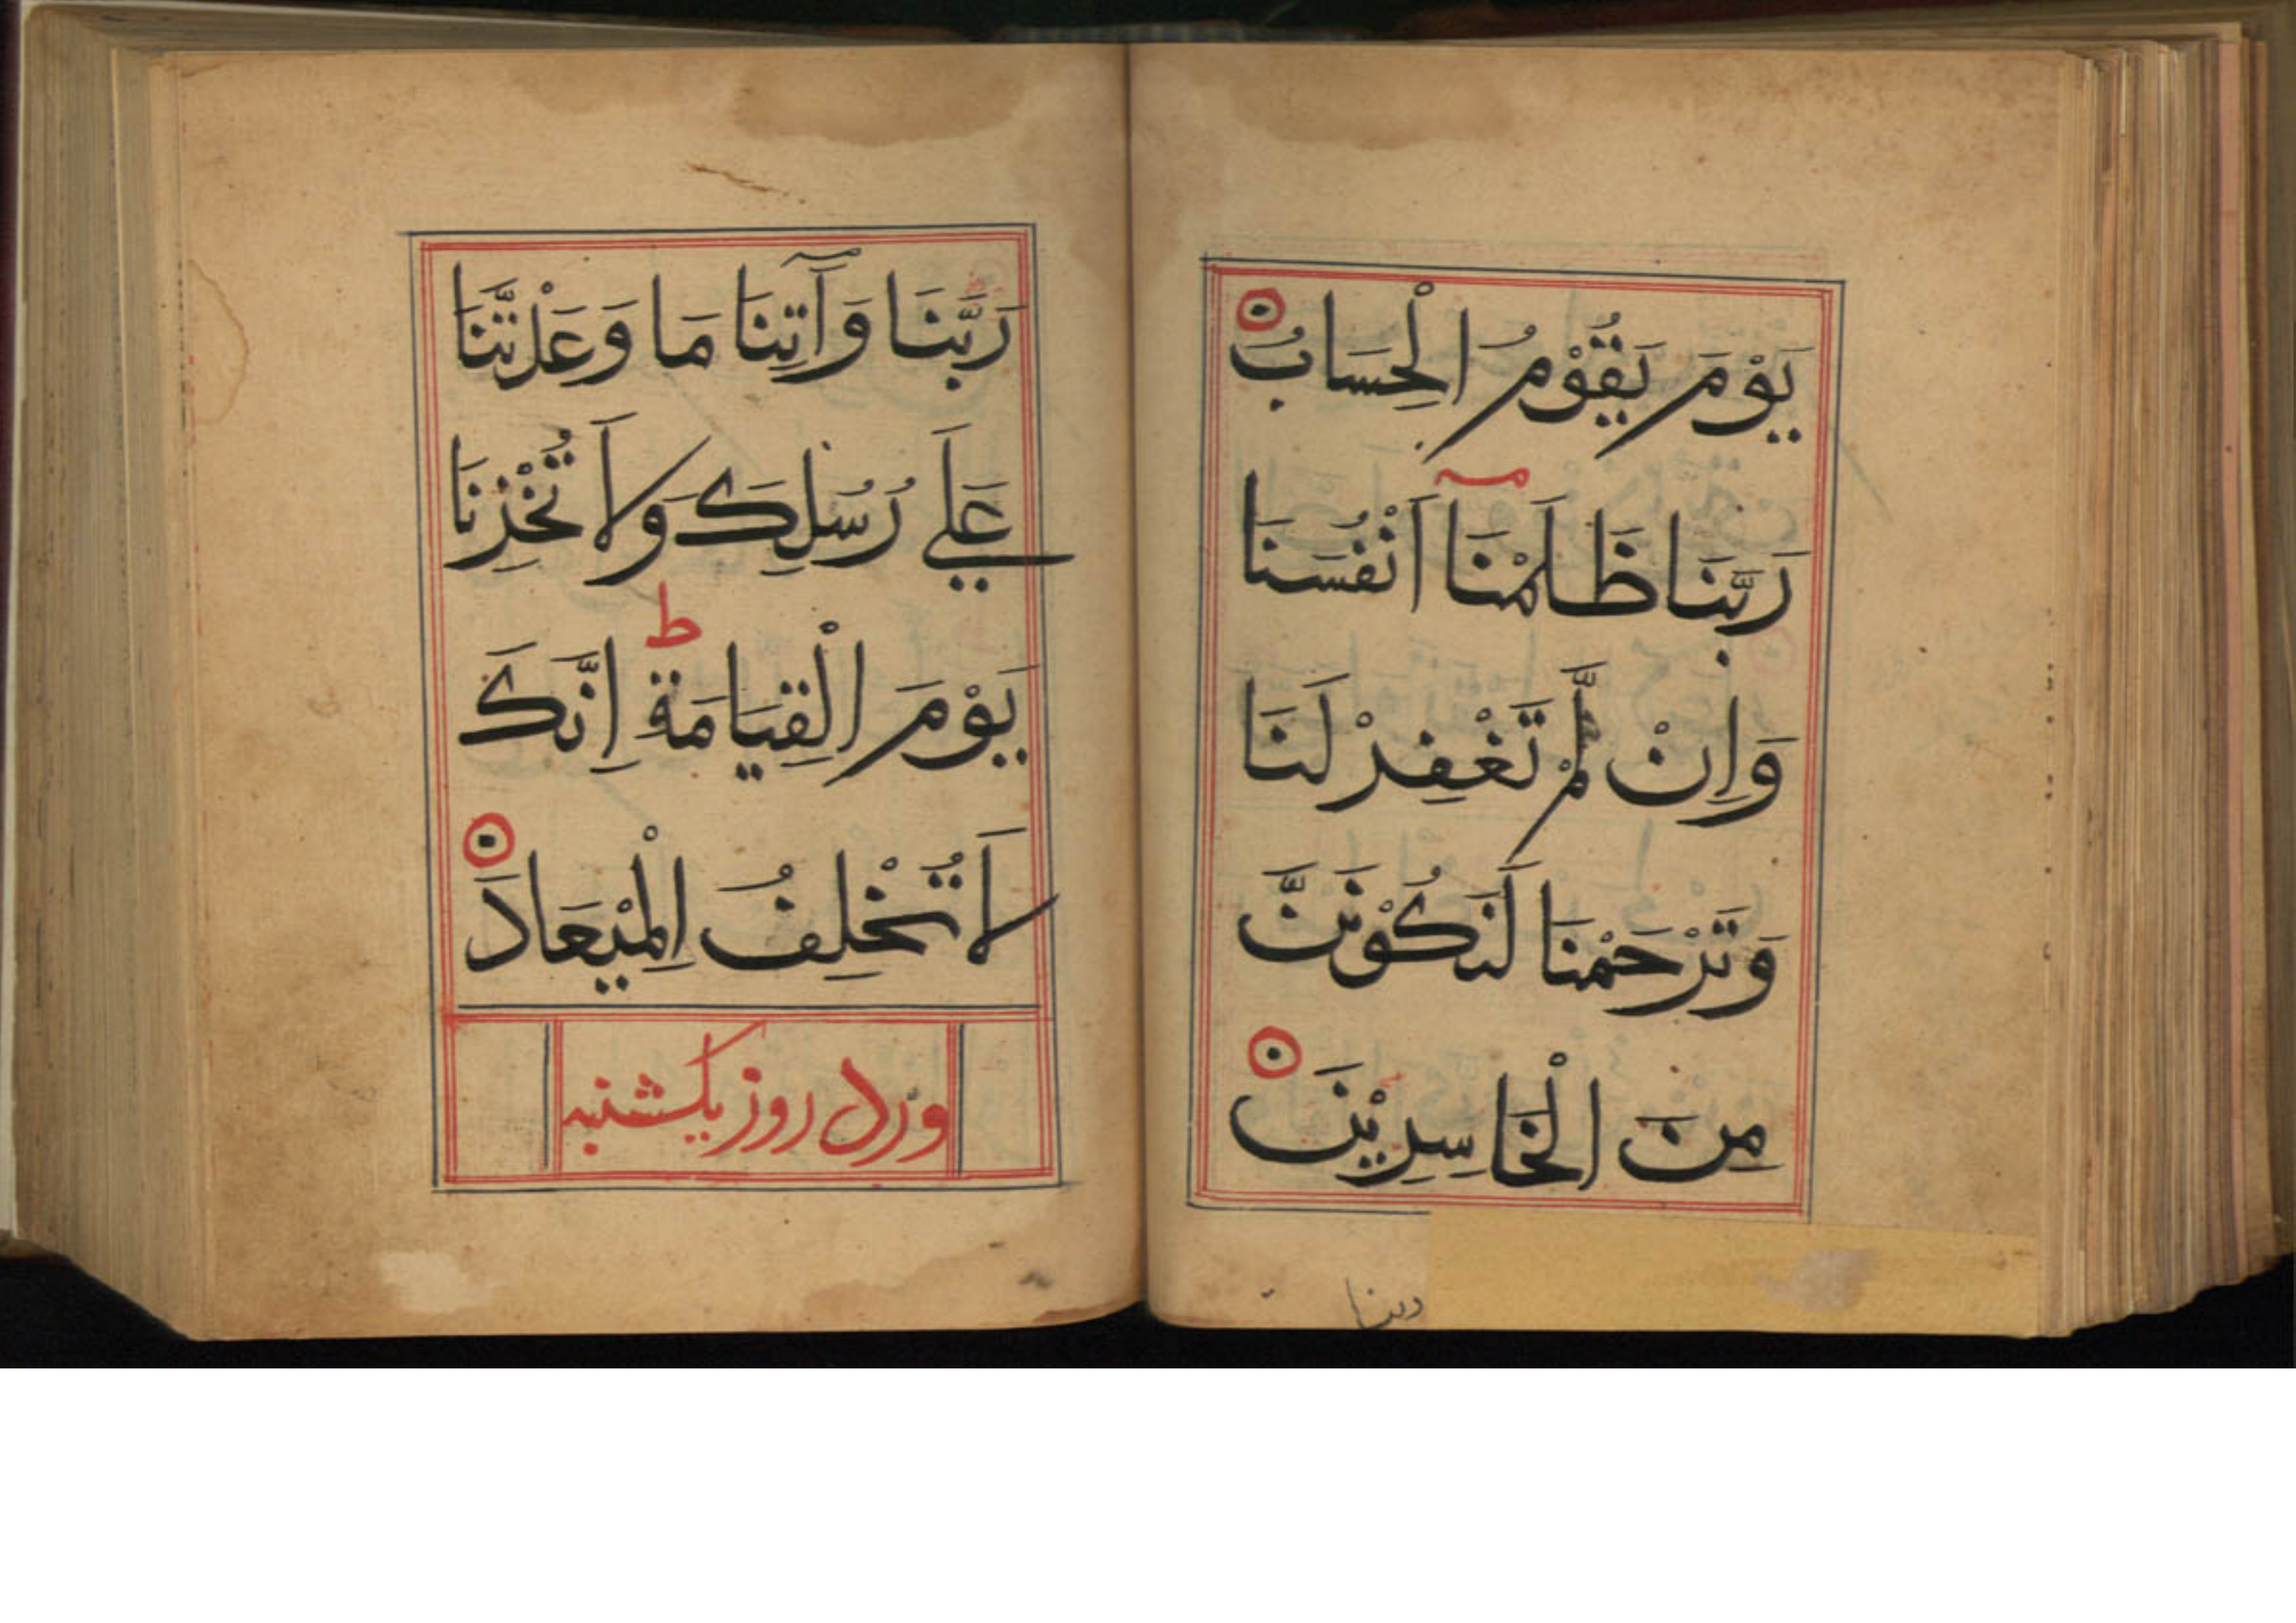 يَوْمَ يَقُوْمُ الْحِسَابُ
رَبَّنَا ظَلَمْنَآ اَنْفُسَنَا
وَاِنْ لَّمْ تَغْفِرْ لَنَا
وَتَرْحَمْنَا لَنَكُوْنَنَّ
مِنَ الْخَاسِرِيْنَ
ربنا
رَبَّنَا وَآتِنَا مَا وَعَدْتَّنَا
عَلَي رُسُلِكَ وَلَا تُخْزِنَا
ط
يَوْمَ الْقِيَامَةِ اِنَّكَ
لَا تُخْلِفُ الْمِيْعَادَ
ورد روز یکشنبه